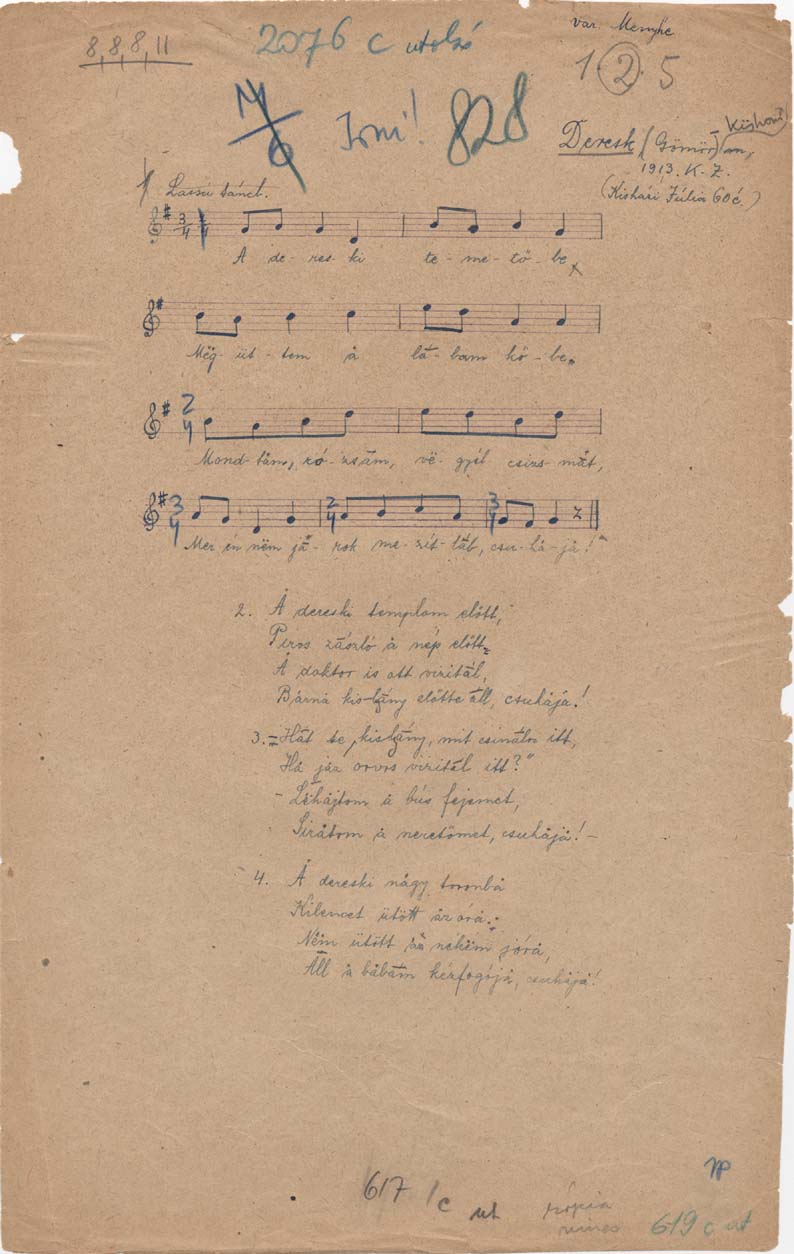 8, 8, 8, 11
2076 c utolsó
var. Menyhe
1 2 5
Irni! 828
Deresk (Gömör)
1913. K. Z.
(Kishári Júlia 60 é.)
Lassú táncb.
3/4
A de-res-ki te-me-tő-be
Mëg-üt-tem å lå-bam kő-be.
2/4
Mond-tåm, ró-zsám, vë-gyél csizs-måt,
3/4 2/4 3/4
Mer én nëm já-rok me-zít-láb, csu-há-jå!"
2. Å dereski templom előtt,
Piros zászló å nép előtt
Å doktor is ott vizitál,
Bárna kislyány előtte áll, csuhája!
3. Hát te, kislyány, mit csinálsz itt,
Há jáz orvos vizitál itt?"
- Lëhájtom å bús fejemet,
Sirátom å szeretőmet, csuhájå! -
4. Å dereski nágy toronbá
Kilencet ütött áz órá;
Nëm ütött áz nékëm jórá,
Áll å bábám kézfogójá, csuhájá!
617 /c ut
kópia
619 c ut